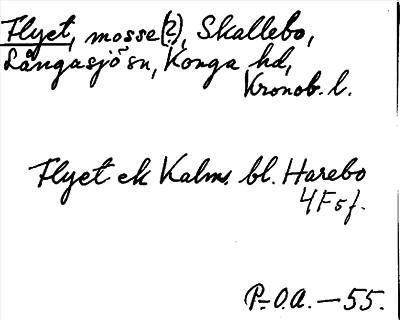 Flyet, mosse(?), Skallebo,
Långasjö sn, Konga hd,
Kronob. l.
Flyet ek Kalms. bl. Harebo
4F5f.
P.-O.A. — 55.